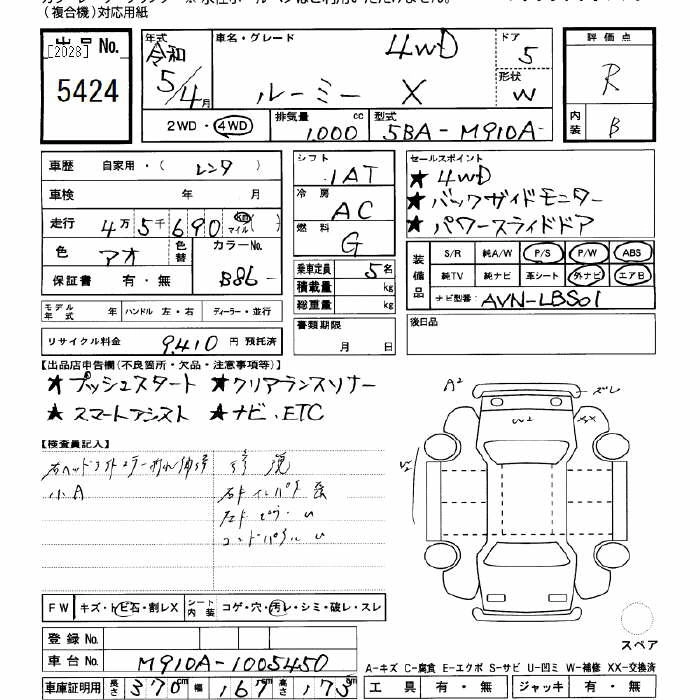 (複合機)対応用紙
出品No.
[2028]
5424
年式
令和
5/4月
車名・グレード
4WD
ルーミー X
ドア
5
形状
W
2WD・4WD
排気量
1,000 cc
型式
5BA-M910A-
評価点
R
内装
B
車歴 自家用・(レンタ)
車検 年 月
走行 4万5千690 km マイル( )
色 アオ
色替
カラーNo.
B86-
保証書 有・無
モデル年式 年
ハンドル 左・右
ディーラー・並行
リサイクル料金 9,410 円 預託済
シフト
IAT
冷房
AC
燃料
G
乗車定員 5名
積載量 kg
総重量 kg
書類期限
月 日
セールスポイント
★4WD
★バックサイドモニター
★パワースライドドア
装備品
S/R 純A/W P/S P/W ABS
純TV 純ナビ 革シート 外ナビ エアB
ナビ型番: AVN-LBS01
後日品
【出品店申告欄(不良箇所・欠品・注意事項等)】
★プッシュスタート ★クリアランスソナー
★スマートアシスト ★ナビ、ETC
【検査員記入】
小A
A2
ズレ
W2
XX
FW キズ・トビ石・割レX
シート内装 コゲ・穴・汚レ・シミ・破レ・スレ
登録No.
車台No. M910A-1005450
車庫証明用 長さ 370cm 幅 167cm 高さ 173cm
スペア
A-キズ C-腐食 E-エクボ S-サビ U-凹ミ W-補修 XX-交換済
工具 有・無 ジャッキ 有・無